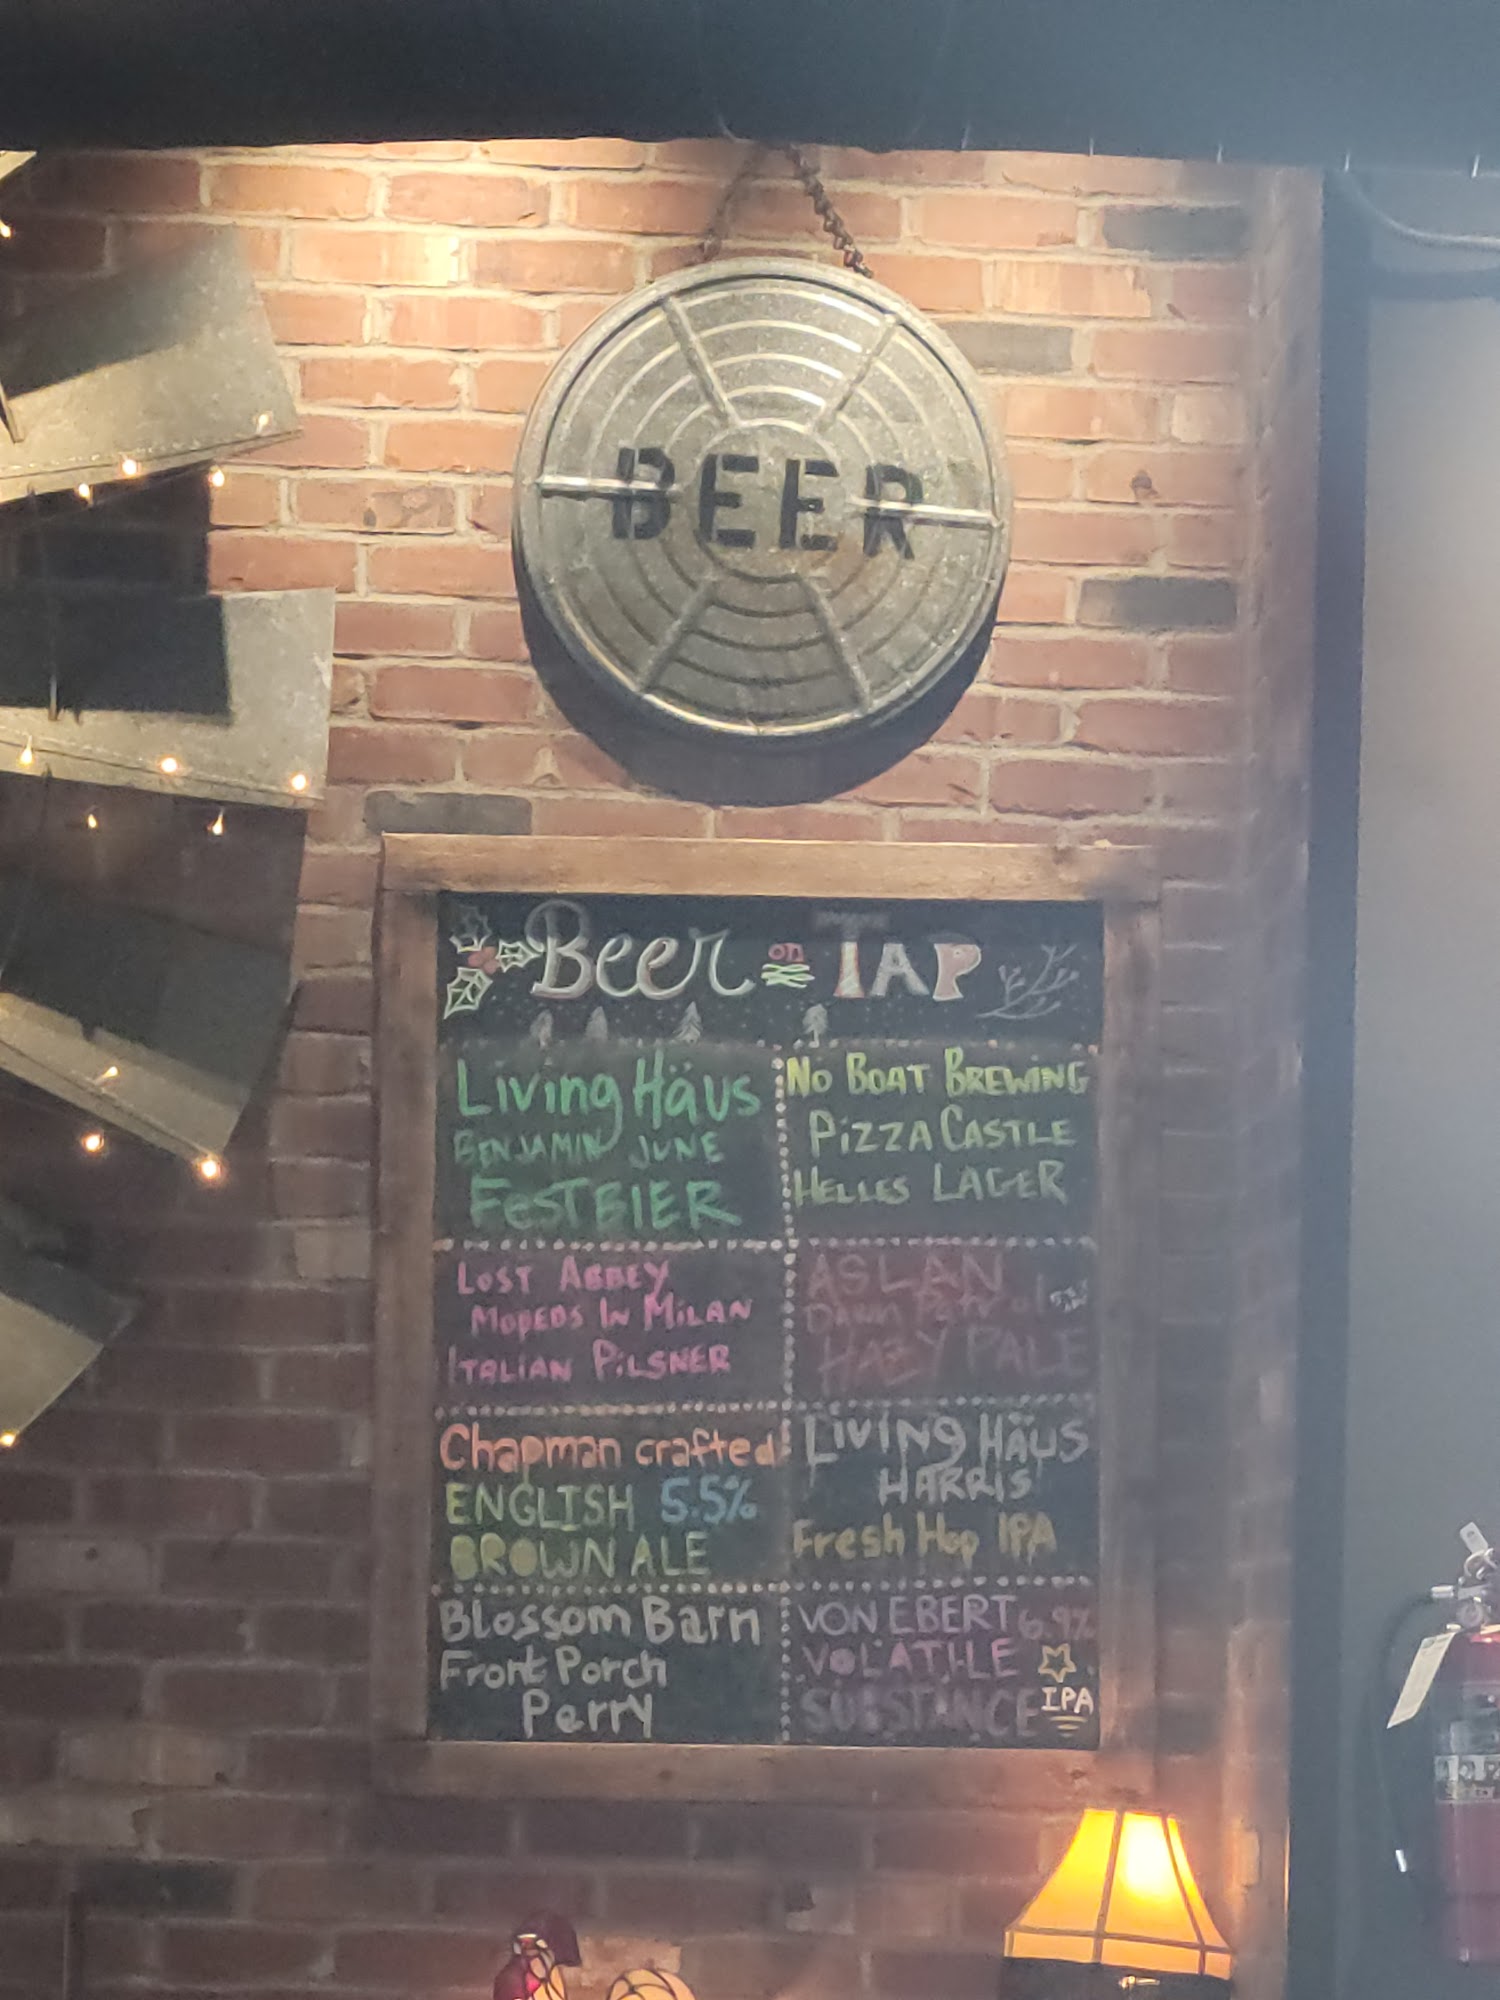 BEER
Beer on TAP
Living Häus
BENJAMIN JUNE
FESTBIER
No BOAT BREWING
PiZZA CASTLE
HELLES LAGER
LOST ABBEY
MOPEDS IN MILAN
ITALIAN PILSNER
ASLAN
Dawn Patrol
HAZY PALE
Chapman crafted
ENGLISH 5.5%
BROWN ALE
LIVING HÄUS
HARRIS
Fresh Hop IPA
Blossom Barn
Front Porch
Perry
VON EBERT 6.9%
VOLATILE
SUBSTANCE IPA